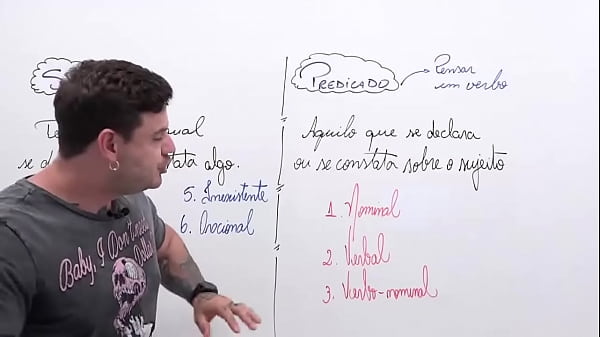 S
Te ual
se d ata algo.
5. Inexistente
6. Oracional
PREDICADO → Pensar
em verbo
Aquilo que se declara
ou se constata sobre o sujeito
1. Nominal
2. Verbal
3. Verbo-nominal
Baby, I Don't need
Dollar